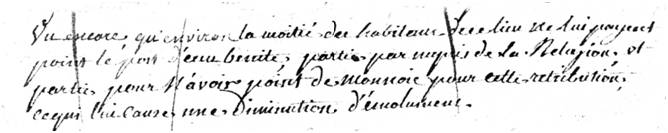 Vu encore qu'environ la moitié des habitans de ce lieu ne lui payent
point le port d'eau benite, partie par mepris de la Religion, et
partie pour n'avoir point de monnoie pour cette retribution,
ce qui lui cause une diminution d'émolument.